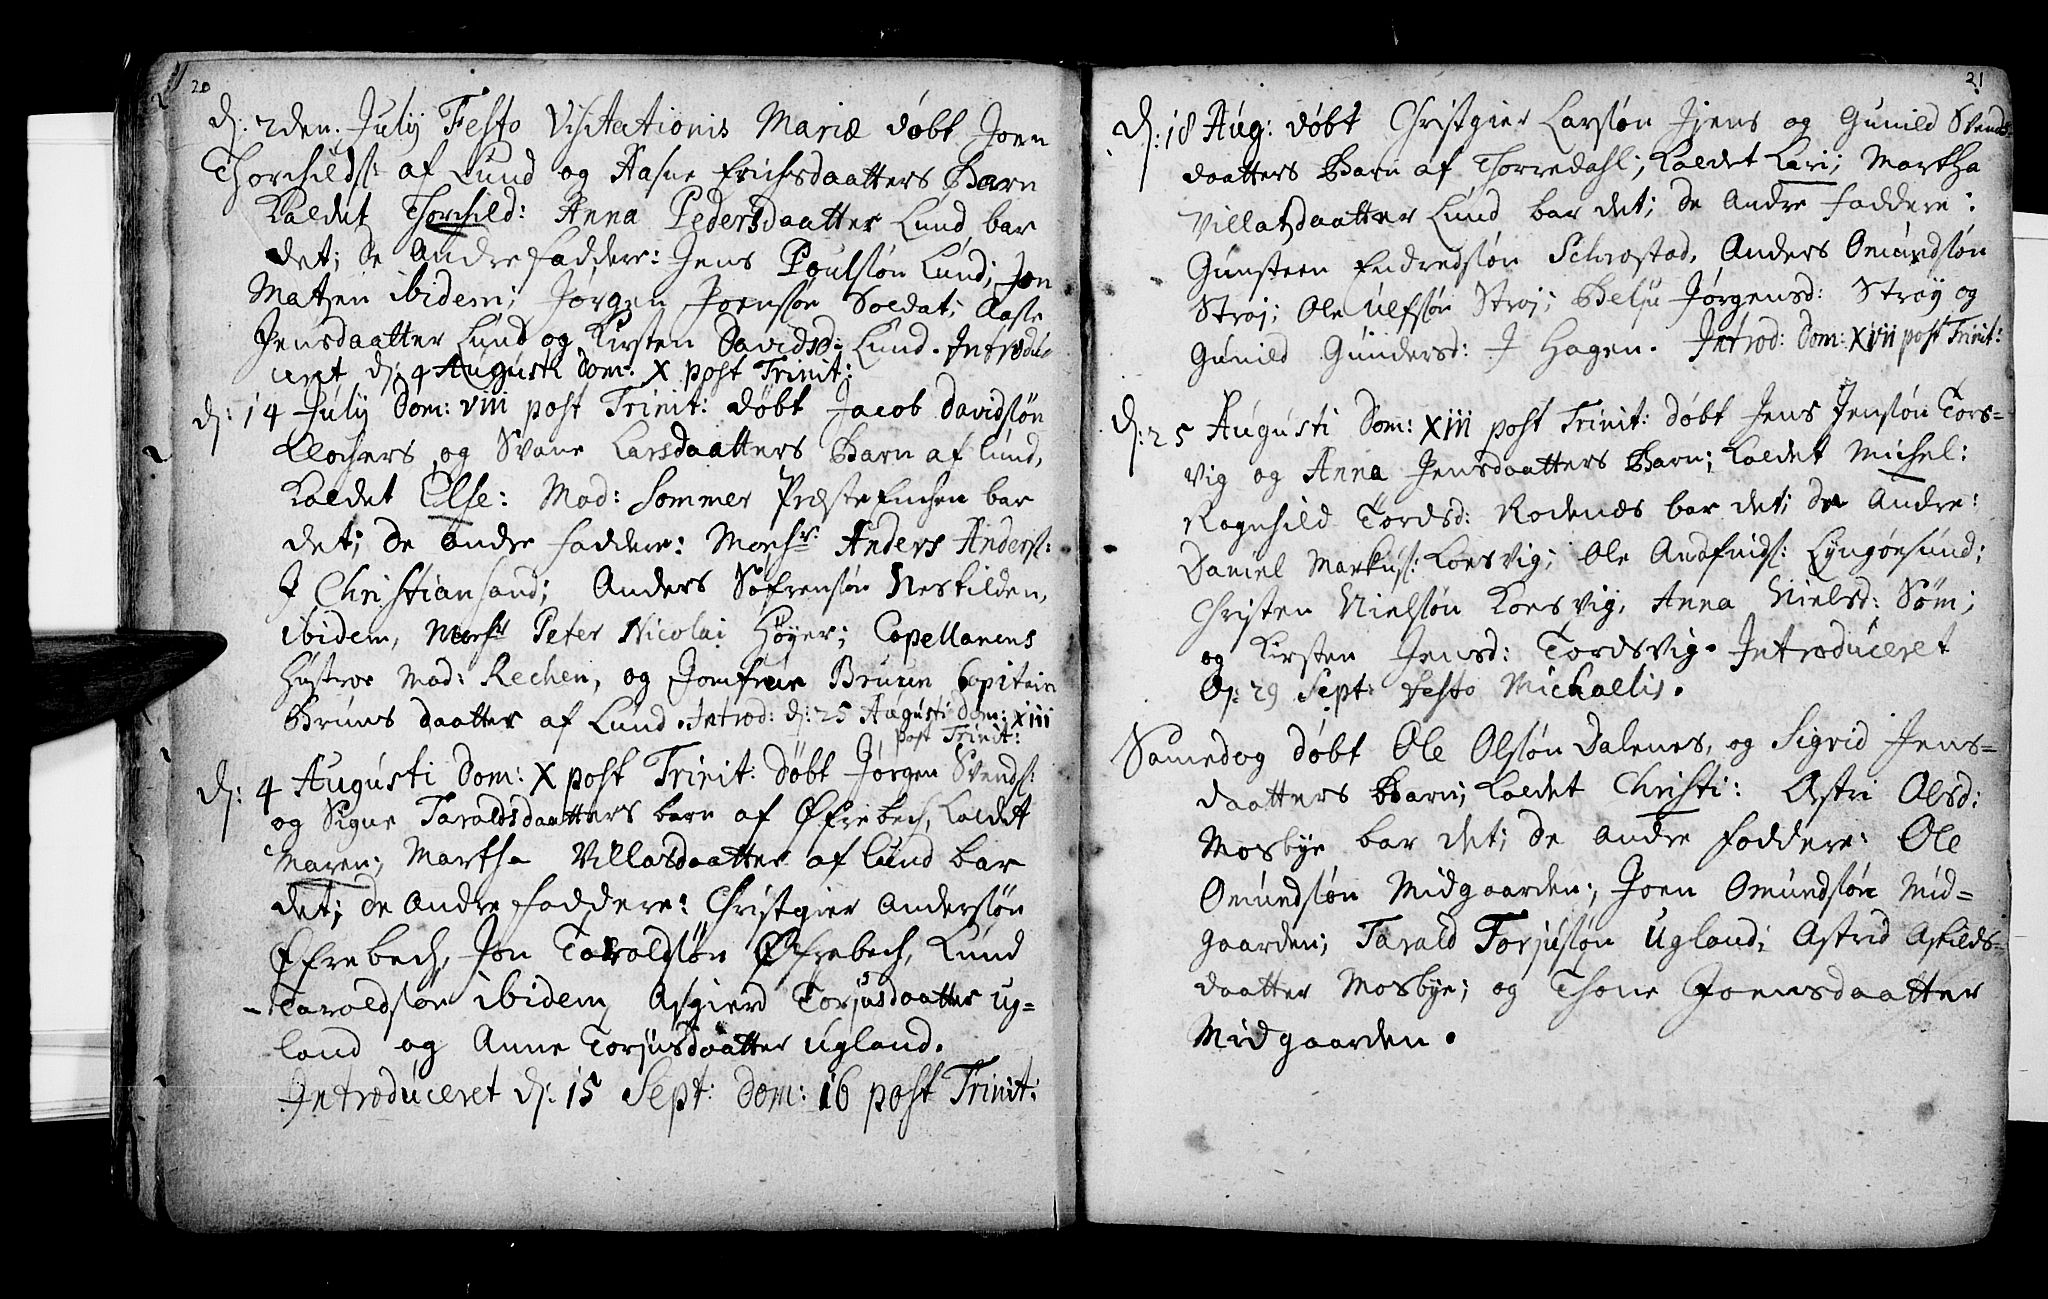 20
d: 2den July Festo Visitationis Mariæ döbt Joen
Thorchilds: af Lund og Aasne Erichsdaatters Barn
Kaldet Thorchild: Anna Pedersdaatter Lund bar
det; De Andre faddere: Jens Poulsön Lund; Jon
Matzen ibidem; Jörgen Joensön Soldat; Aasle
Jensdaatter Lund og Kirsten Davidsd: Lund. Introdu
ceret d: 4 Augusti Dom: X post Trinit:
d: 14 July Dom: VIII post Trinit: döbt Jacob Davidsön
Klochers og Svane Larsdaatters Barn af Lund,
Kaldet Else: Mad: Sommer Præste Enchen bar
det; De andre faddere: Monsr: Anders Anders:
I Christiansand; Anders Söfrensön Neskilden,
ibidem, Monsr Peter Nicolai Höyer; Capellanens
Hustroe Mad: Rechen, og Jomfrue Bruun Capitain
Bruns daatter af Lund. Introd: d: 25 Augusti Dom: XIII
post Trinit:
d: 4 Augusti Dom: X post Trinit: döbt Jörgen Svends:
og Signe Taraldsdaatters barn af Øfrebech, Kaldet
Maren; Martha Villasdaatter af Lund bar
det; De Andre faddere: Christgier Andersön
Øfrebech, Jon Taraldsön Øfrebech, Lund
Taraldsön ibidem, Asgierd Torjusdaatter Ug=
land og Anne Torjusdaatter Ugland.
Introduceret d: 15 Sept: Dom: 16 post Trinit:
21
d: 18 Aug: döbt Christgier Larsön Jjens og Gunild Svends=
daatters Barn af Torredahl; Kaldet Kari; Martha
Villatzdaatter Lund bar det; De Andre Faddere:
Gunsteen Endredsön Schrostad, Anders Omundsön
Stroj; Ole Ulfsön Stroj; Belju Jörgensd: Stroy og
Gunild Gundersd: I Hagen. Introd: Dom: XVII post Trinit:
d: 25 Augusti Dom: XIII post Trinit: döbt Jens Jensön Tors=
vig og Anna Jensdaatters Barn; Kaldet Michel:
Ragnhild Tordsd: Rodenæs bar det; De Andre:
Daniel Markus: Korsvig; Ole Andfinds: Lyngöesund;
Christen Nielsön Korsvig, Anna Nielsd: Söm;
og Kirsten Jensd: Tordsvig. Introduceret
d: 29 Sept: Festo Michaelis.
Samedag döbt Ole Olsön Dalenes, og Sigrid Jens=
daatters Barn; Kaldet Christi: Astri Olsd:
Mosbye bar det; De Andre Faddere: Ole
Omundsön Midgaarden; Joen Omundsön Mid=
gaarden; Tarald Torjusön Ugland; Astrid Askilds=
daatter Mosbye; og Thone Joensdaatter
Midgaarden.